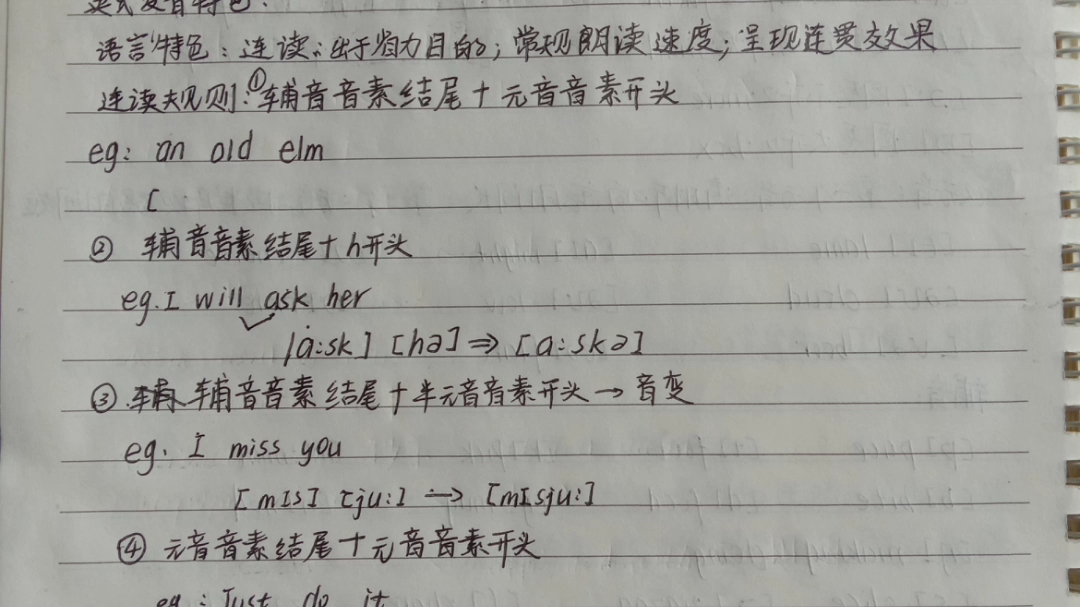 英式发音特色：
语言特色：连读：出于省力目的；常规朗读速度；呈现连贯效果
连读规则：①辅音音素结尾＋元音音素开头
eg: an old elm
[
② 辅音音素结尾＋h开头
eg. I will ask her
[a:sk] [hə] ⇒ [a:skə]
③ 辅音音素结尾＋半元音音素开头→音变
eg. I miss you
[mIs] [ju:] → [mIsju:]
④ 元音音素结尾＋元音音素开头
eg: Just do it